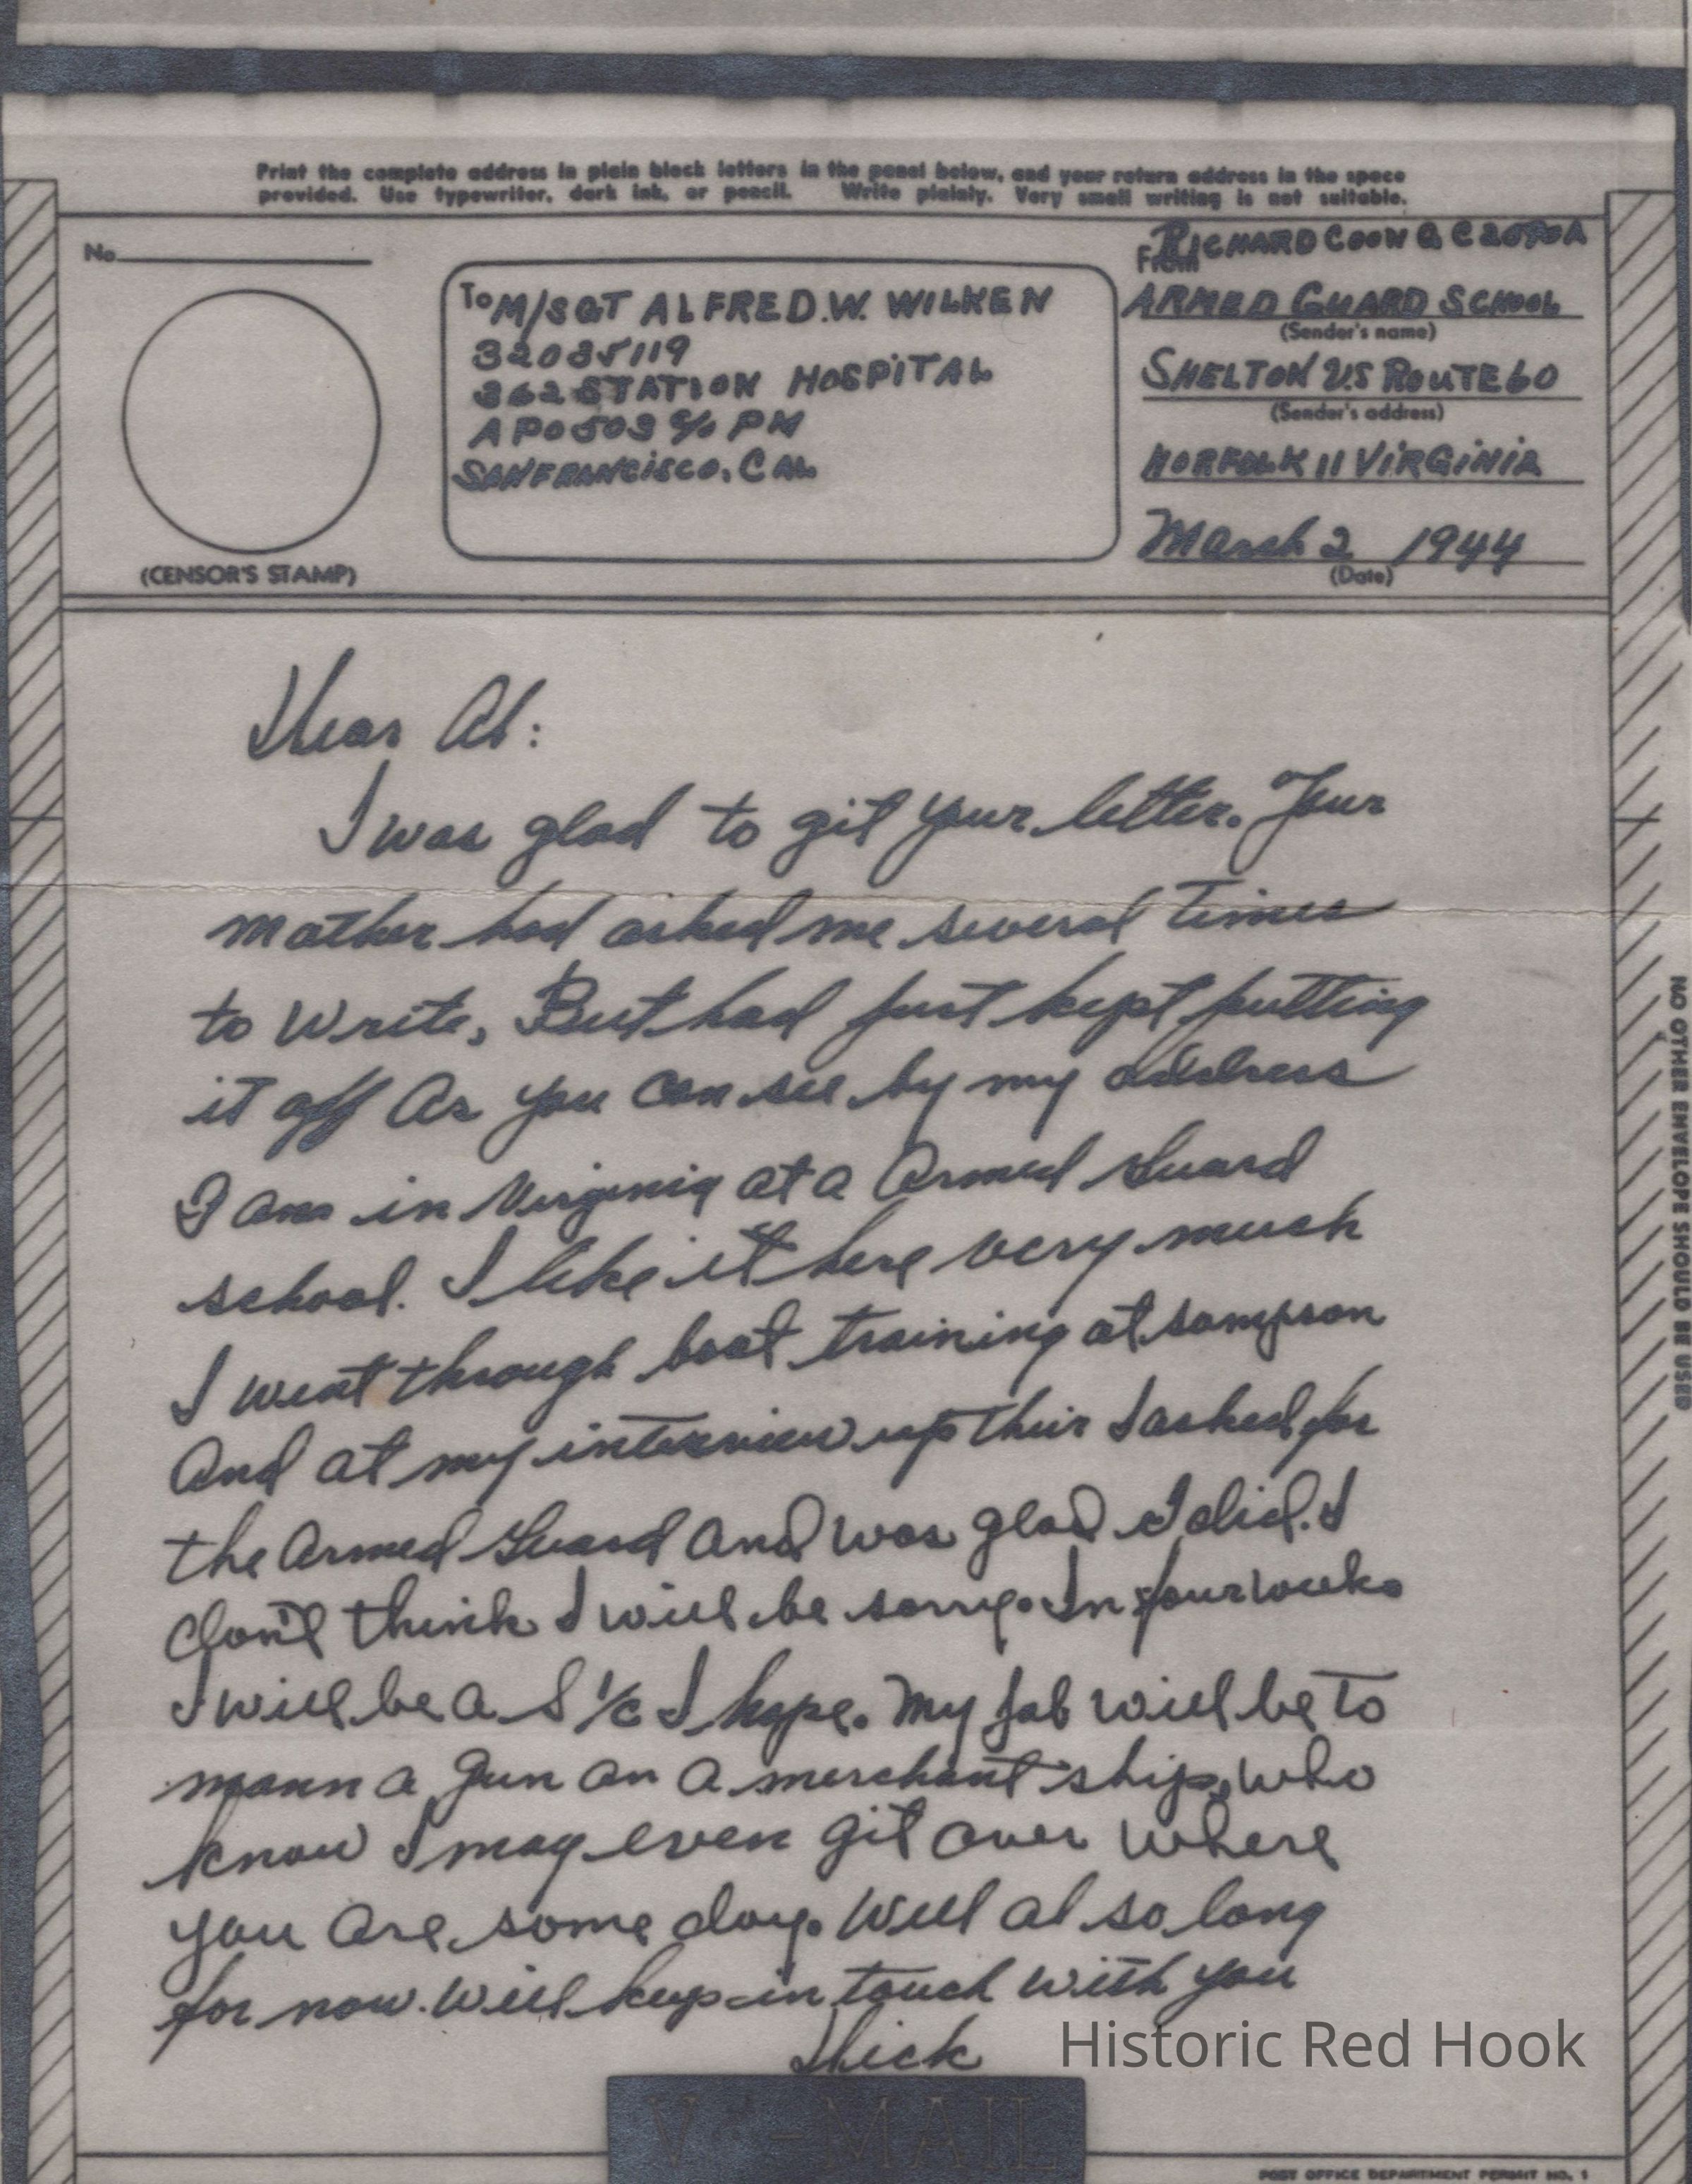 Print the complete address in plain block letters in the panel below, and your return address in the space
provided. Use typewriter, dark ink, or pencil. Write plainly. Very small writing is not suitable.
No.
(CENSOR'S STAMP)
To M/SGT ALFRED.W. WILKEN
32035119
362 STATION HOSPITAL
APO 503 c/o PM
SANFRANCISCO, CAL
From
RICHARD COON
ARMED GUARD SCHOOL
(Sender's name)
SHELTON U.S ROUTE 60
(Sender's address)
NORFOLK 11 VIRGINIA
March 2 1944
(Date)
Dear Al:
I was glad to git your letter. Your
mother had asked me several times
to write, But had just kept putting
it off As you can see by my address
I am in Virginia at a Armed Guard
school. I like it here very much
I went through boot training at sampson
And at my interview up their I asked for
the Armed Guard and was glad I did. I
don't think I will be sorry. In four weeks
I will be a S 1/c I hope. My job will be to
mann a gun on a merchant ship, who
know I may even git over where
you are some day. Well al so long
for now. Will keep in touch with you
Dick
Historic Red Hook
V···-MAIL
NO OTHER ENVELOPE SHOULD BE USED
POST OFFICE DEPARTMENT PERMIT NO. 1